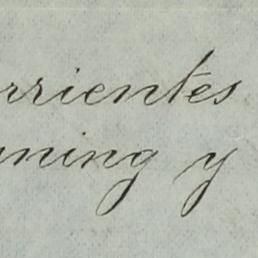 rrientes
nning y